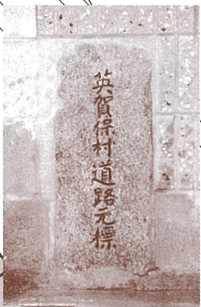 英賀保村道路元標